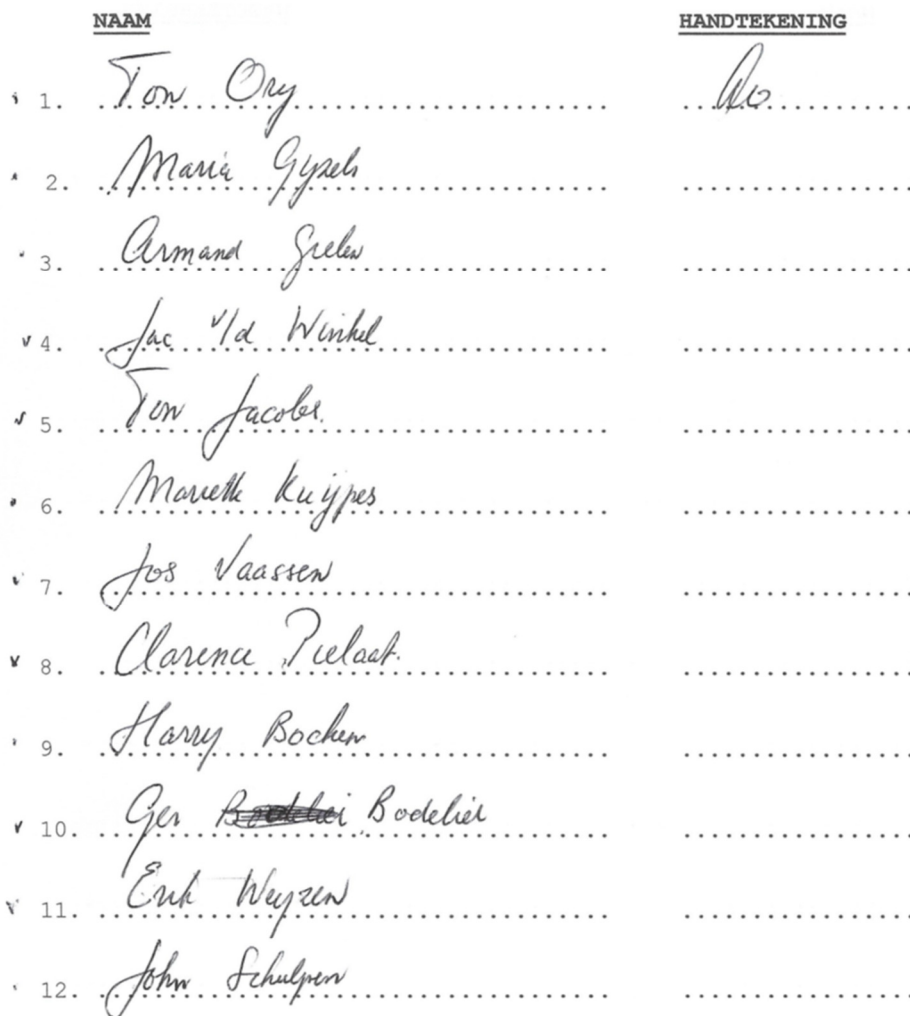 NAAM HANDTEKENING
1. Ton Ory
2. Maria Gyzels
3. Armand Grelen
4. Jac v/d Winkel
5. Ton Jacobs.
6. Mariette Kuijpes
7. Jos Vaassen
8. Clarence Pielaat.
9. Harry Bochem
10. Ger Bodelier
11. Erik Weyzen
12. John Schulpen